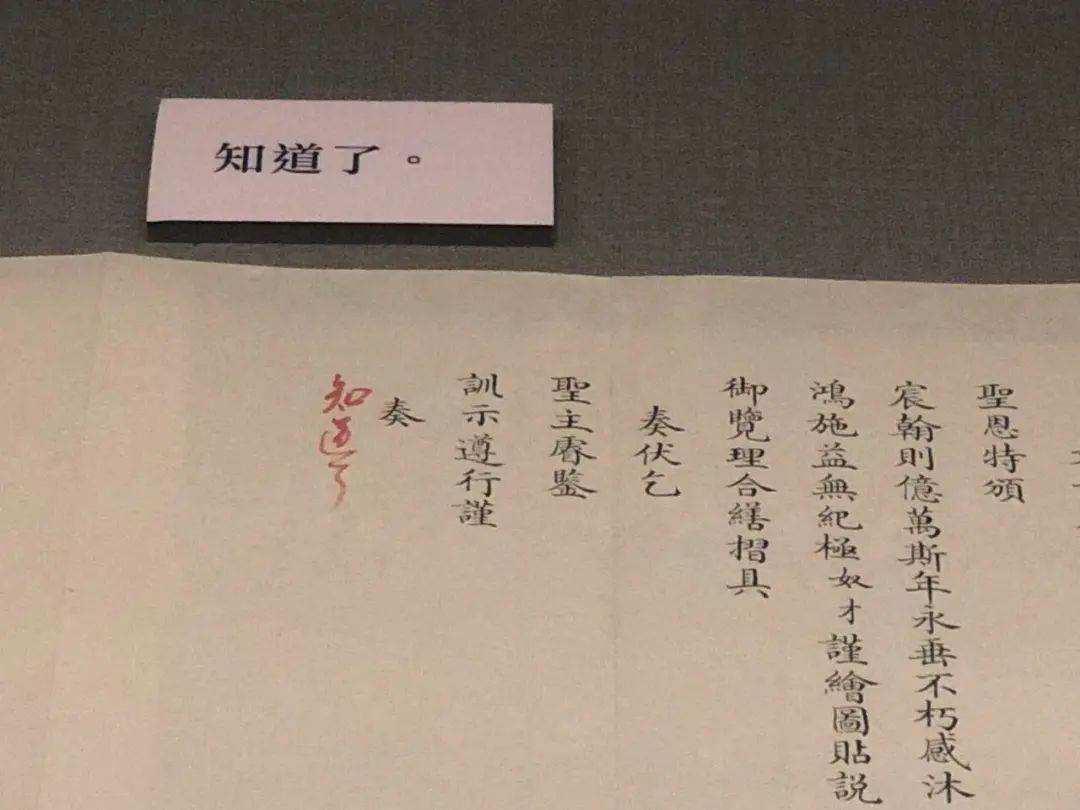 知道了。
聖恩特頒
宸翰則億萬斯年永垂不朽感沐
鴻施益無紀極奴才謹繪圖貼説
御覽理合繕摺具
奏伏乞
聖主睿鑒
訓示遵行謹
奏
知道了